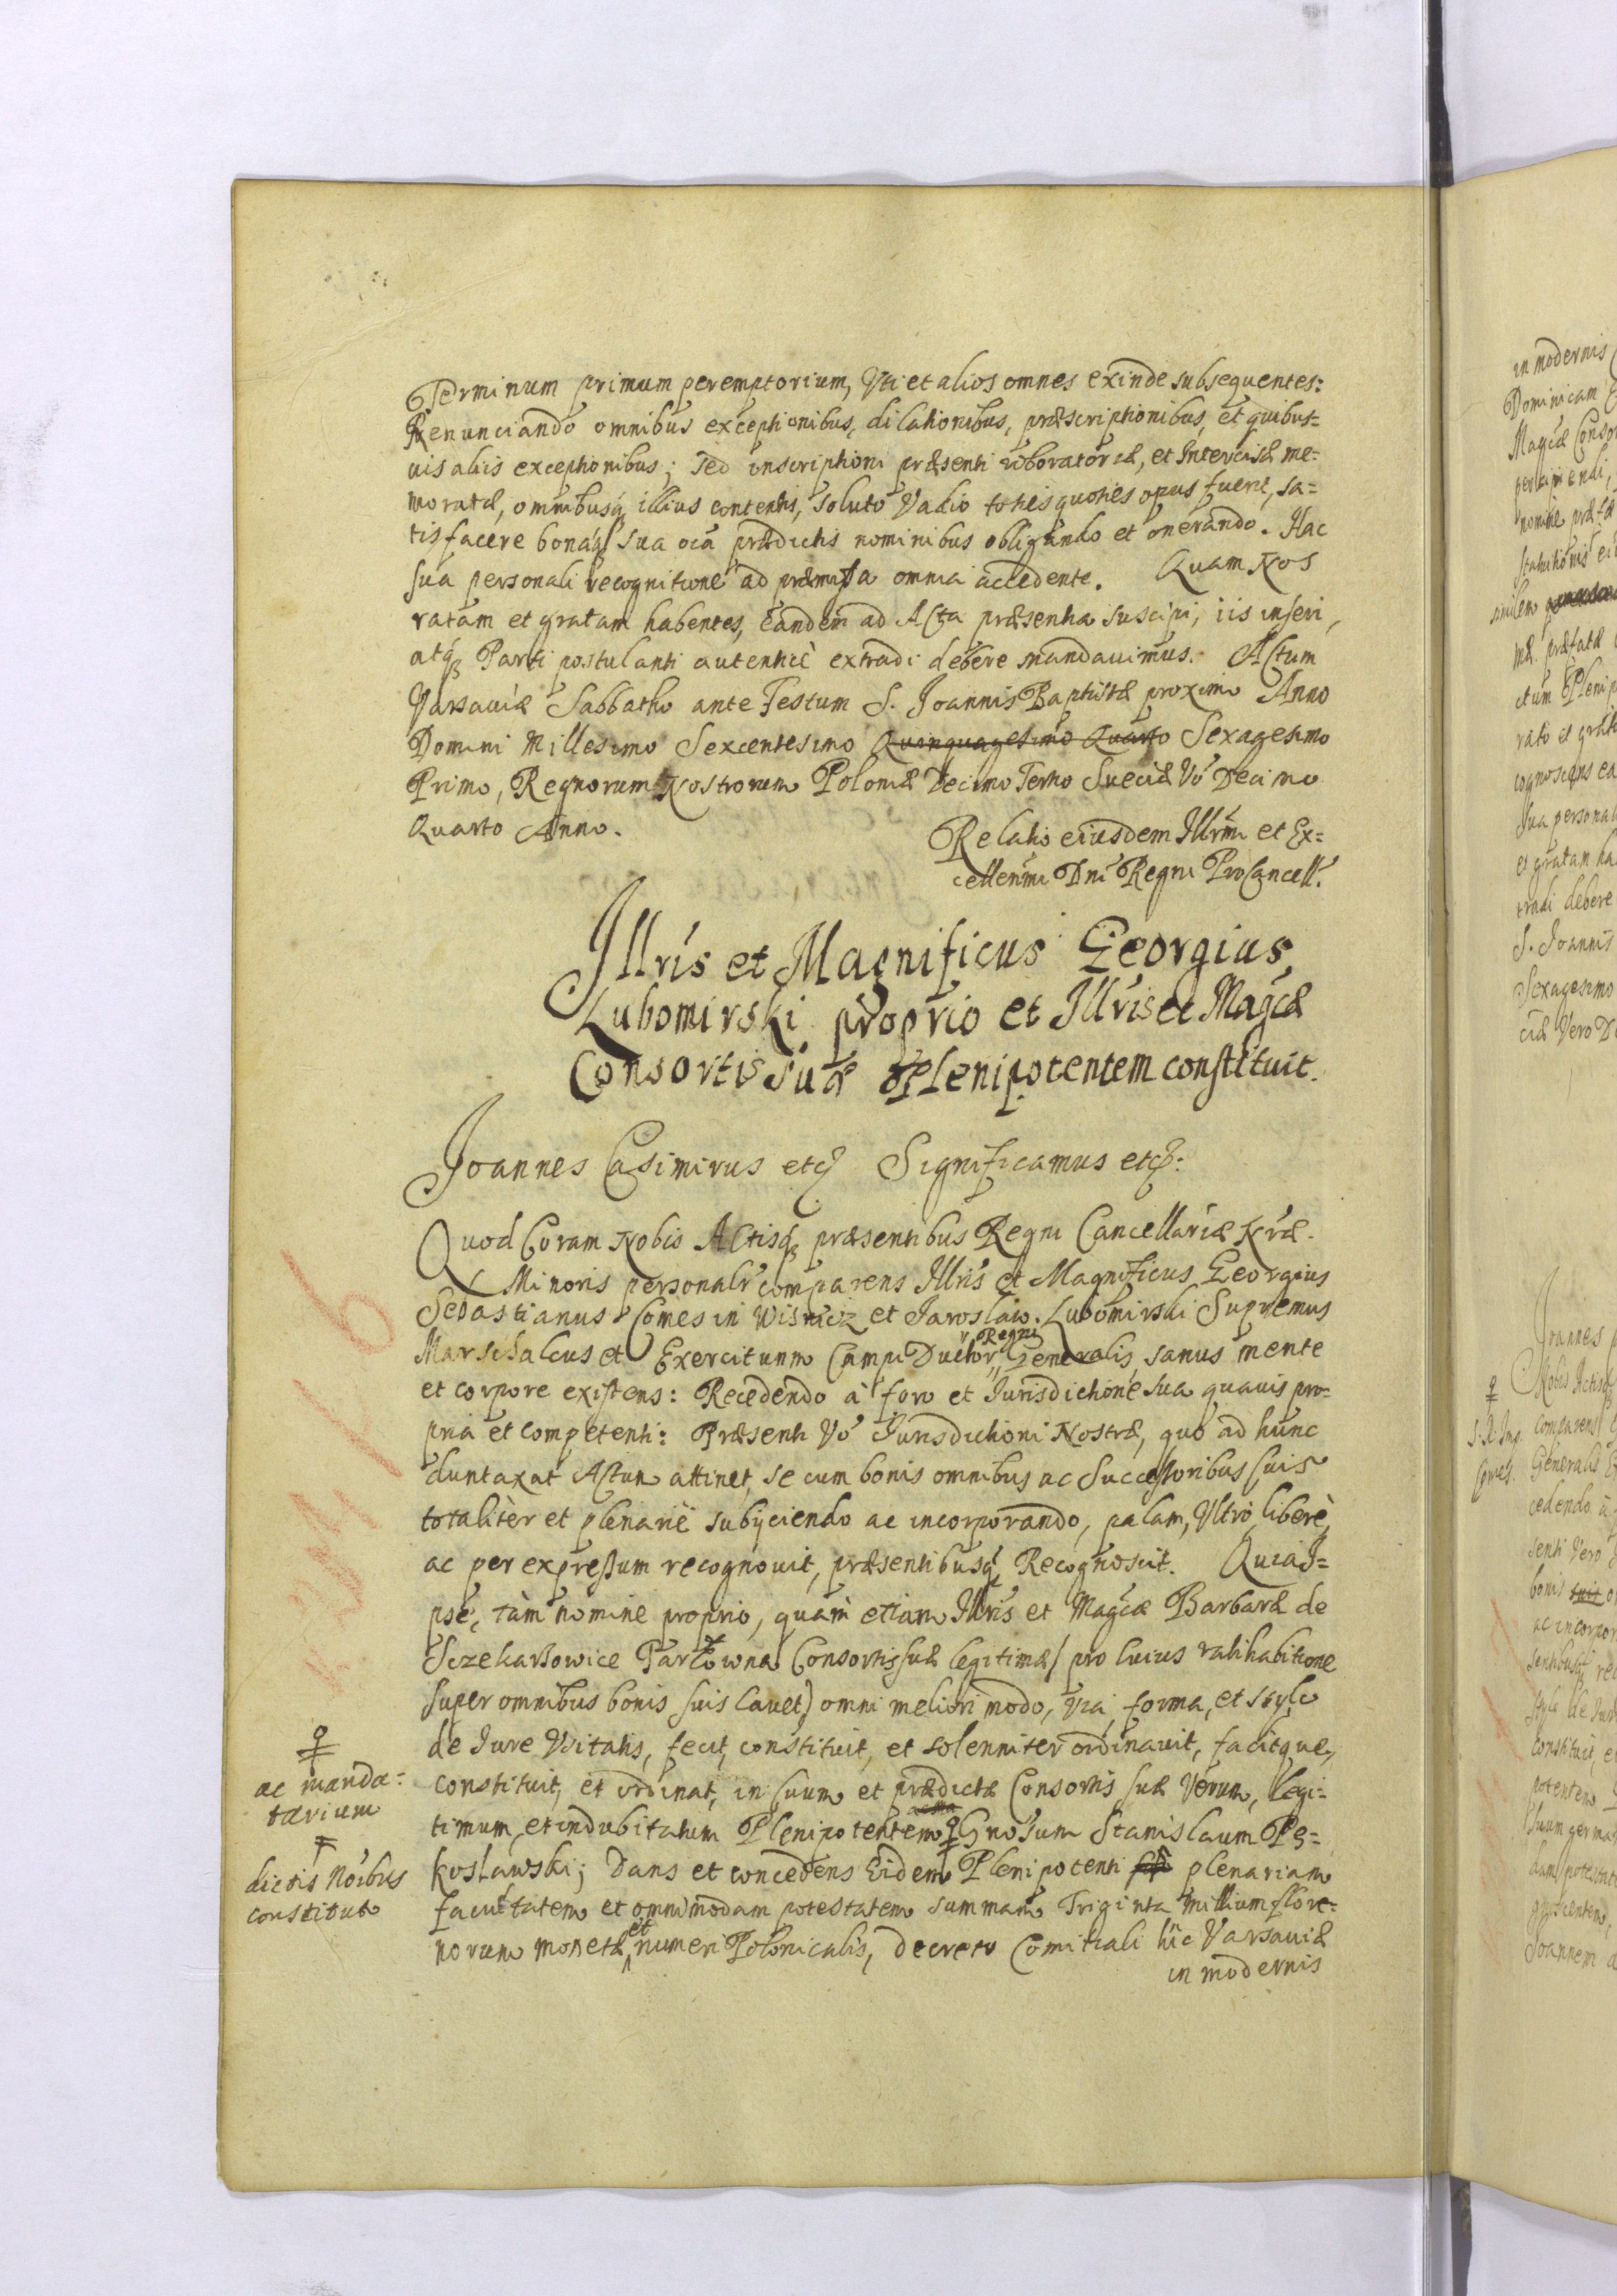 Terminum primum peremptorium, Vti et alios omnes exinde subsequentes:
Renunciando omnibus exceptionibus, dilationibus, præscriptionibus, et quibus=
uis aliis exceptionibus; Sed inscriptioni præsenti roboratoriæ, et Intercisæ me=
moratæ, omnibusq illius contentis, soluto Vadio toties quoties opus fuerit, sa=
tisfacere bonaq sua oia prædictis nominibus obligando et onerando. Hac
sua personali recognitione ad præmissa omnia accedente. Quam Nos
ratam et gratam habentes, Eandem ad Acta præsentia suscipi, iis inseri,
atq Parti postulanti autenticè extradi debere mandauimus. Actum
Varsauiæ Sabbatho ante Festum S. Joannis Baptistæ proximo Anno
Domini Millesimo Sexcentesimo Quinquagesimo Quarto Sexagesimo
Primo, Regnorum Nostrorum Poloniæ Decimo Tertio Sueciæ Vo Decimo
Quarto Anno.
Relatio eiusdem Illrmi et Ex=
cellenmi Dni Regni ProCancell.
Illris et Magnificus Georgius
Lubomirski proprio et Illris et Magcæ
Consortis suæ Plenipotentem constituit.
Joannes Casimirus etc Significamus etc:
Quod Coram Nobis Actisq præsentibus Regni Cancellariæ Nræ
Minoris personalr comparens Illris et Magnificus Georgius
Sebastianus Comes in Wisnicz et Jaroslaw Lubomirski Supremus
Marschalcus et Exercituum Campi Ductor Regni Generalis sanus mente
et corpore existens: Recedendo à foro et Iurisdictione sua quauis pro=
pria et competenti: Præsenti Vo Jurisdictioni Nostræ, quo ad hunc
duntaxat Actum attinet, se cum bonis omnibus ac Successoribus suis
totalitèr et plenariè subijciendo ac incorporando, palam, Vltrò liberè,
ac per expressum recognouit, præsentibusq Recognoscit. Quia I=
pse, tàm nomine proprio, quàm etiam Illris et Magcæ Barbaræ de
Sczekarzowice Tarłowna Consortis suæ legitimæ / pro cuius ratihabitione
super omnibus bonis suis cauet) omni meliori modo, via, forma, et stylo
de Iure Vsitatis, fecit, constituit, et solenniter ordinauit, facitque,
constituit, et ordinat, in suum et prædictæ Consortis suæ Verum, legi=
timum, et indubitatum Plenipotentem Gnosum Stanislaum Pę=
kosławski; Dans et concedens Eidem Plenipotenti plenariam
facultatem et omnimodam potestatem summam Triginta Millium flore=
norum monetæ et numeri Polonicalis, decreto Comitiali hic Varsauiæ
in modernis
ac manda=
tarium
dictis Noibus
constituto